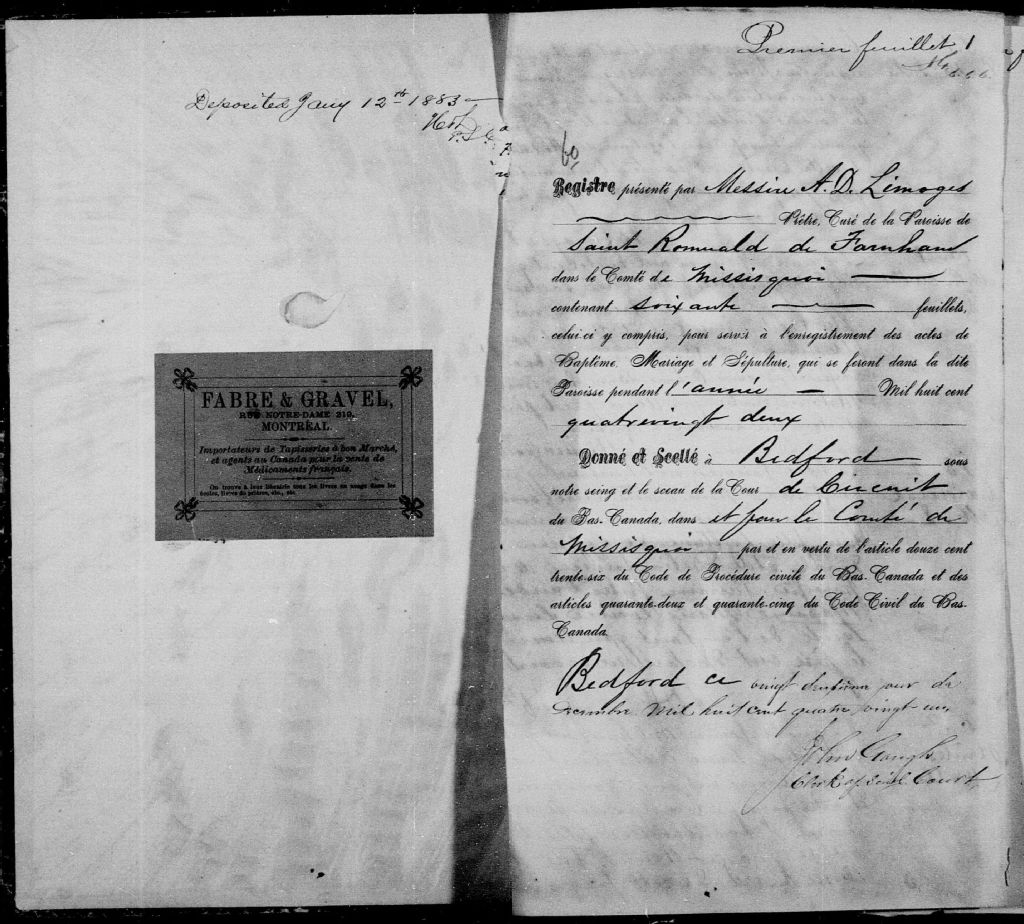 Deposited Jany 12th 1883
FABRE & GRAVEL,
RUE NOTRE-DAME 219,
MONTRÉAL.
Importateurs de Tapisseries à bon Marché,
et agents au Canada pour la vente de
Médicaments français.
On trouve à leur librairie tous les livres en usage dans les
écoles, livres de prières, etc., etc.
Premier feuillet 1
60
Registre présenté par Messire A. D. Limoges
Prêtre, Curé de la Paroisse de
Saint Romuald de Farnham
dans le Comté de Missisquoi
contenant soixante feuillets,
celui-ci y compris, pour servir à l'enregistrement des actes de
Baptême, Mariage et Sépulture, qui se feront dans la dite
Paroisse pendant l'année Mil huit cent
quatrevingt deux
Donné et Scellé à Bedford sous
notre seing et le sceau de la Cour de Circuit
du Bas-Canada, dans et pour le Comté de
Missisquoi par et en vertu de l'article douze cent
trente-six du Code de Procédure civile du Bas-Canada et des
articles quarante-deux et quarante-cinq du Code Civil du Bas-
Canada.
Bedford ce vingt deuxième jour de
Decembre Mil huit cent quatre vingt un
John Gough
Clerk of said Court